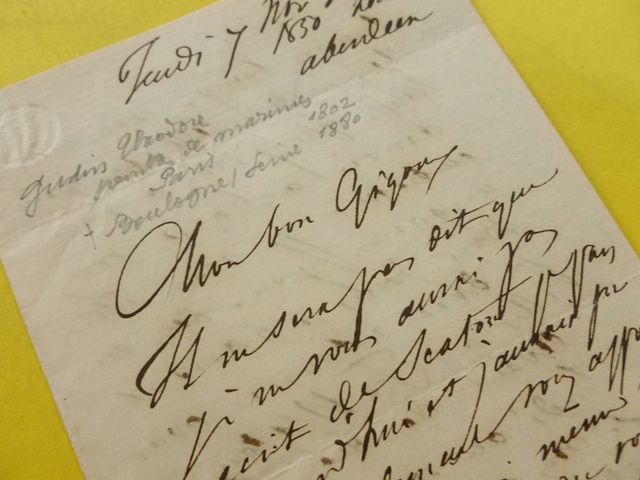 Jeudi 7 Nov
1850
aberdeen
Gudin Théodore
peintre de marines
Paris 1802
† Boulogne s/ Seine 1880
Mon bon Gigoux
Il ne sera pas dit que
je ne vous aurai pas
écrit de
d'hui et j'aurais pu
même